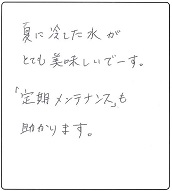 夏に冷した水が
とても美味しいでーす。
「定期メンテナンス」も
助かります。